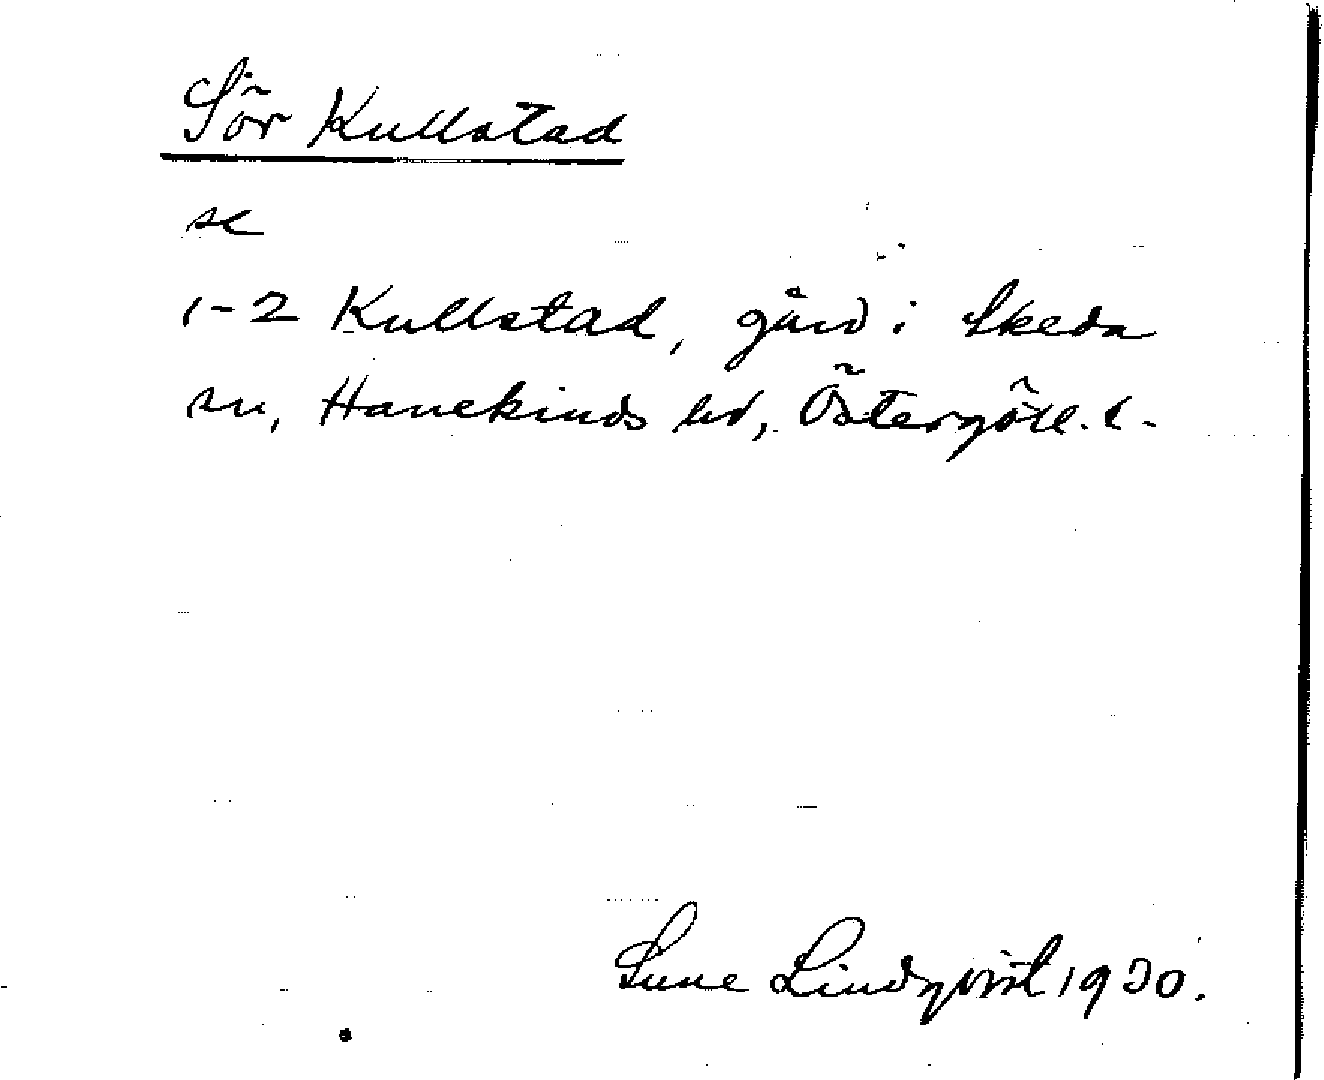 Sör Kullstad
se
1-2 Kullstad, gård i Skeda
sn, Hanekinds hd, Östergötl. l.
Sune Lindqvist 1930.